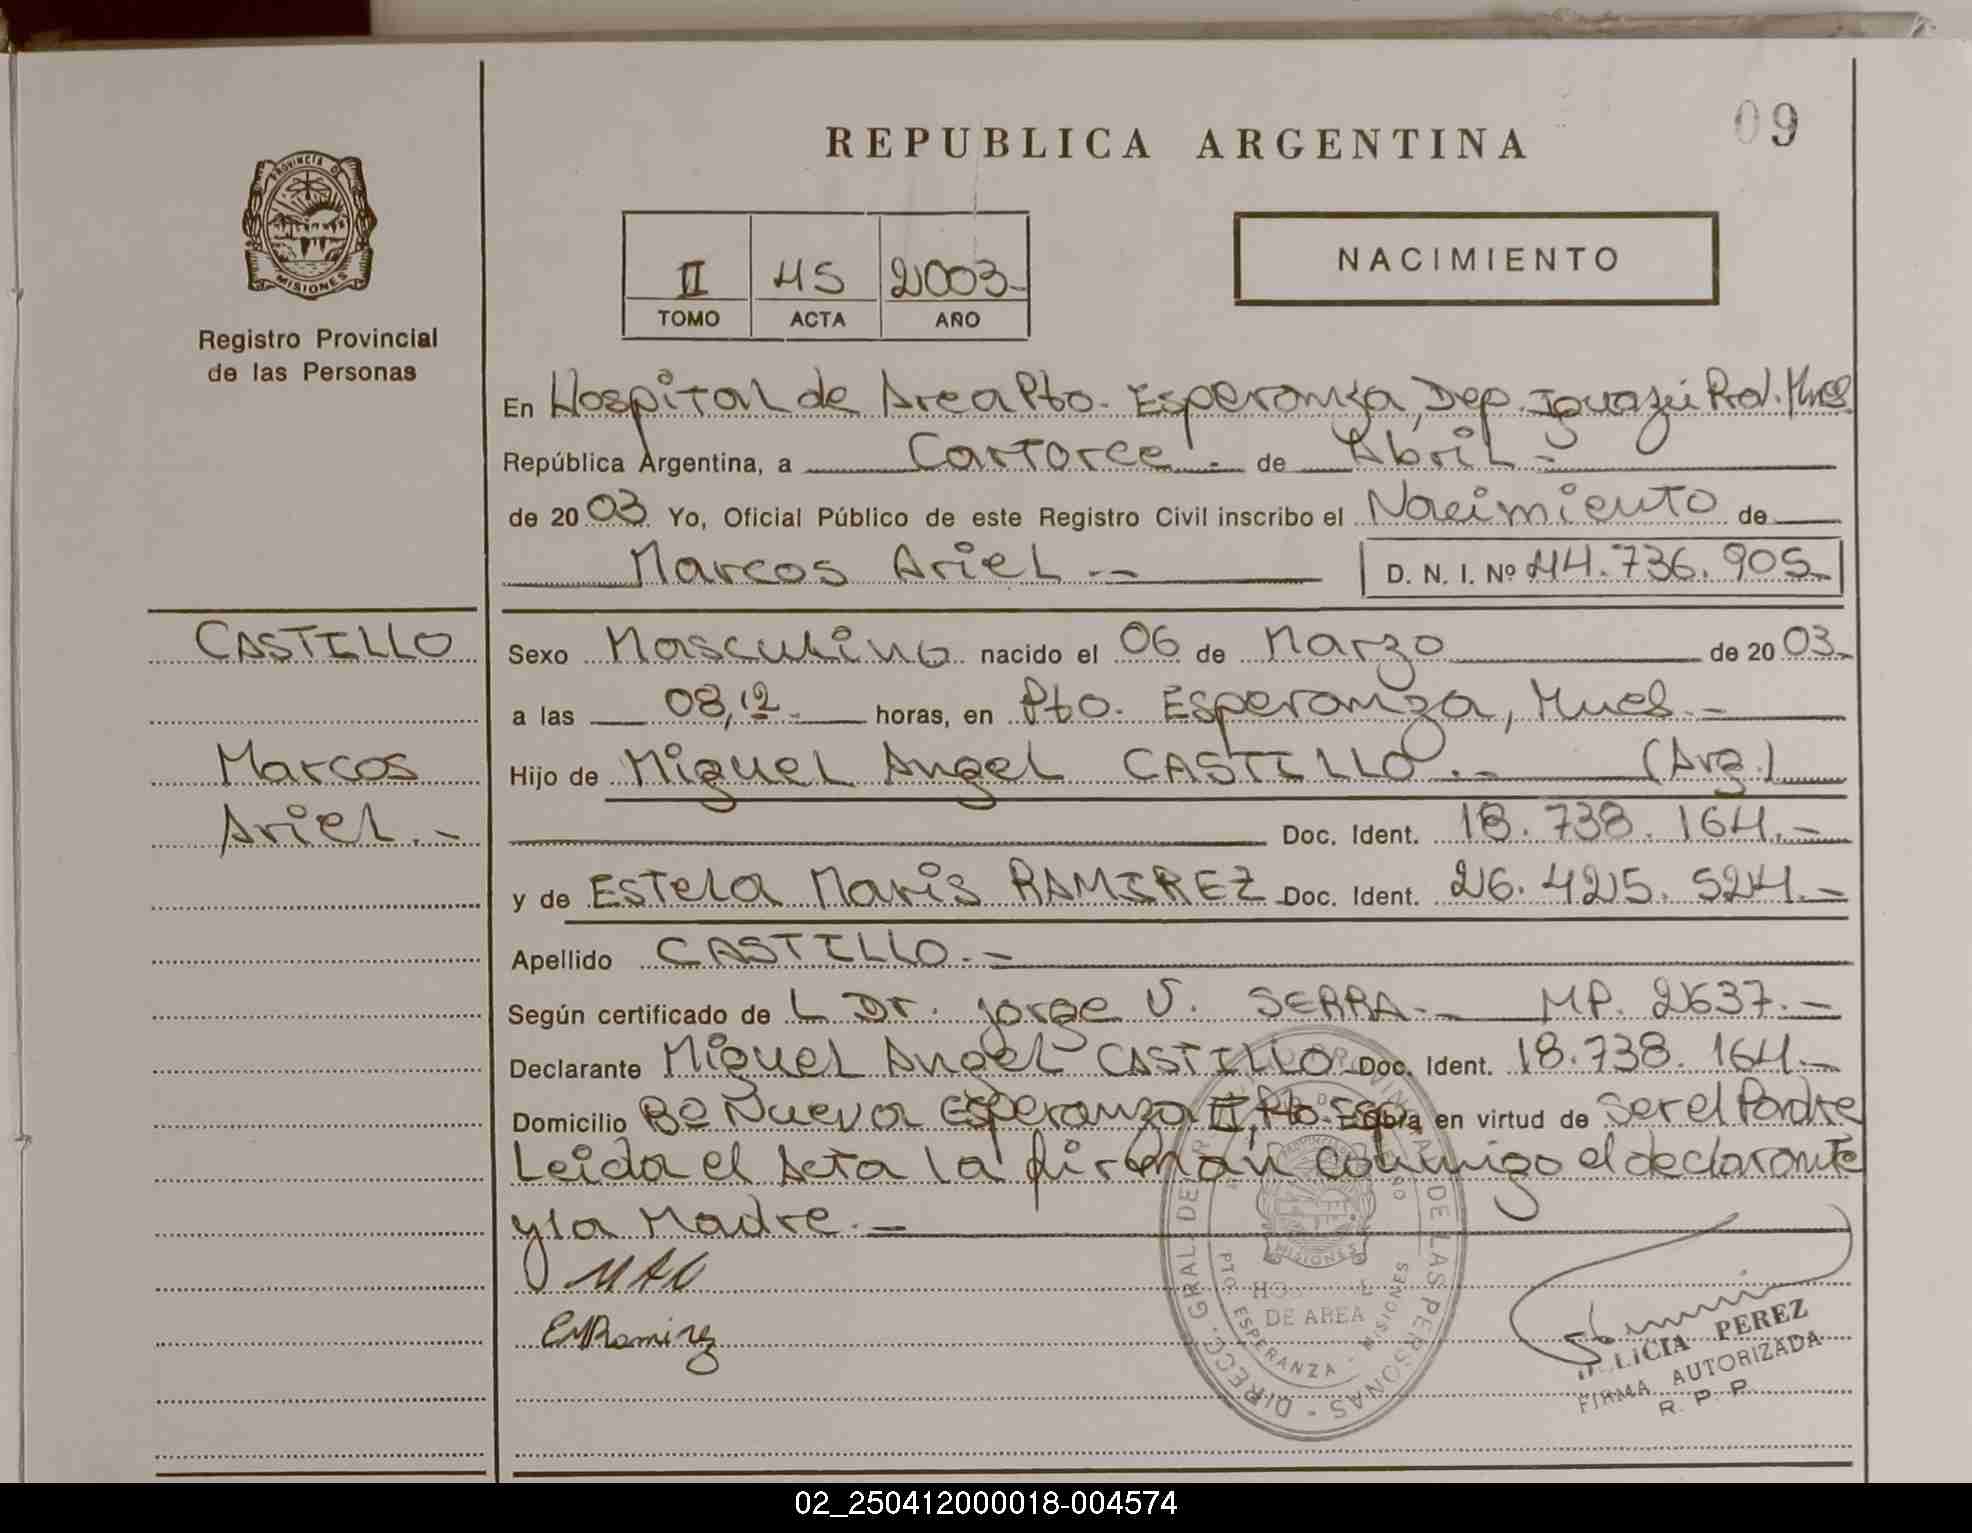 09
REPUBLICA ARGENTINA
PROVINCIA DE
MISIONES
Registro Provincial
de las Personas
II 45 2003-
TOMO ACTA AÑO
NACIMIENTO
En Hospital de Area Pto. Esperanza, Dep. Iguazú Prov. Mnes
República Argentina, a Cartorce.- de Abril.-
de 2003 Yo, Oficial Público de este Registro Civil inscribo el Nacimiento de
Marcos Ariel.- D. N. I. Nº 44.736.905-
CASTILLO
Marcos
Ariel.-
Sexo Masculino nacido el 06 de Marzo de 2003.-
a las 08,12 horas, en Pto. Esperanza, Mnes.-
Hijo de Miguel Angel CASTILLO.- (Arg.)
Doc. Ident. 18.738.164.-
y de Estela Maris RAMIREZ Doc. Ident. 26.425.524.-
Apellido CASTILLO.-
Según certificado de L Dr. Jorge V. SERRA.- MP. 2637.-
Declarante Miguel Angel CASTILLO Doc. Ident. 18.738.164.-
Domicilio Bº Nueva Esperanza II, Pto. Esp. Obra en virtud de ser el Padre
Leida el Acta la firman conmigo el declarante
y la Madre.-
MAC
EMRamirez
DIRECC. GRAL. DE LAS PERSONAS
MISIONES
DE AREA
PTO. ESPERANZA - MISIONES
LICIA PEREZ
FIRMA AUTORIZADA
R. P. P.
02_250412000018-004574